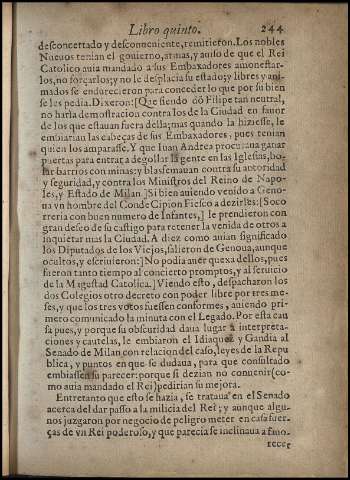 Libro quinto. 244
desconcertado y desconueniente, remitieron. Los nobles
Nueuos tenian el gouierno, armas, y auiso de que el Rei
Catolico auia mandado a sus Embaxadores amonestar-
los, no forçarlos; y no le desplacia su estado; y libres y ani-
mados se endurecieron para conceder lo que por su bien
se les pedia. Dixeron: [Que siendo dō Filipe tan neutral,
no haria demostracion contra los de la Ciudad en fauor
de los que estauan fuera della; mas quando la hiziesse, le
embiarian las cabeças de sus Embaxadores, pues tenian
quien los amparasse. Y que Iuan Andrea procuraua ganar
puertas para entrar a degollar la gente en las Iglesias, bo-
lar barrios con minas: y blasfemauan contra su autoridad
y seguridad, y contra los Ministros del Reino de Napo-
les, y Estado de Milan.] Si bien auiendo venido a Geno-
ua vn hombre del Conde Cipion Fiesco a dezirles: [Soco
rreria con buen numero de Infantes,] le prendieron con
gran deseo de su castigo para retener la venida de otros a
inquietar mas la Ciudad. A diez como auian significado
los Diputados de los Viejos, salieron de Genoua, aunque
ocultos, y escriuieron: [No podia auer quexa dellos, pues
fueron tanto tiempo al concierto promptos, y al seruicio
de la Magestad Catolica.] Viendo esto, despacharon los
dos Colegios otro decreto con poder libre por tres me-
ses, y que los tres votos fuessen conformes, auiendo pri-
mero comunicado la minuta con el Legado. Por esta cau
sa pues, y porque su obscuridad daua lugar a interpreta-
ciones y cautelas, le embiaron el Idiaquez y Gandia al
Senado de Milan con relacion del caso, leyes de la Repu
blica, y puntos en que se dudaua, para que consultado
embiassen su parecer: porque si dezian no conuenir (co-
mo auia mandado el Rei) pedirian su mejora.
Entretanto que esto se hazia, se trataua en el Senado
acerca del dar passo a la milicia del Rei; y aunque algu-
nos juzgaron por negocio de peligro meter en casa fuer-
ças de vn Rei poderoso, y que parecia se inclinaua a fauo-
recer